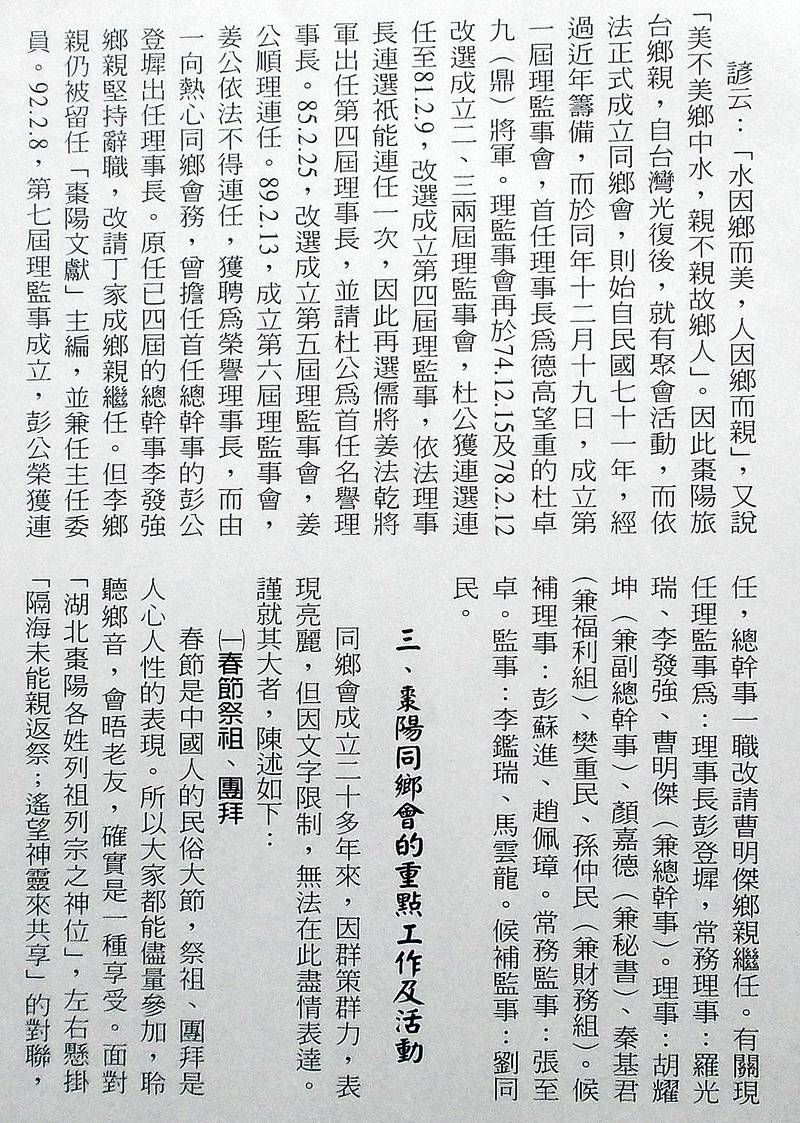 諺云：「水因鄉而美，人因鄉而親」，又說
「美不美鄉中水，親不親故鄉人」。因此棗陽旅
台鄉親，自台灣光復後，就有聚會活動，而依
法正式成立同鄉會，則始自民國七十一年，經
過近年籌備，而於同年十二月十九日，成立第
一屆理監事會，首任理事長為德高望重的杜卓
九（鼎）將軍。理監事會再於74.12.15及78.2.12
改選成立二、三兩屆理監事會，杜公獲連選連
任至81.2.9，改選成立第四屆理監事，依法理事
長連選祇能連任一次，因此再選儒將姜法乾將
軍出任第四屆理事長，並請杜公為首任名譽理
事長。85.2.25，改選成立第五屆理監事會，姜
公順理連任。89.2.13，成立第六屆理監事會，
姜公依法不得連任，獲聘為榮譽理事長，而由
一向熱心同鄉會務，曾擔任首任總幹事的彭公
登墀出任理事長。原任已四屆的總幹事李發強
鄉親堅持辭職，改請丁家成鄉親繼任。但李鄉
親仍被留任「棗陽文獻」主編，並兼任主任委
員。92.2.8，第七屆理監事成立，彭公榮獲連
任，總幹事一職改請曹明傑鄉親繼任。有關現
任理監事為：理事長彭登墀，常務理事：羅光
瑞、李發強、曹明傑（兼總幹事）。理事：胡耀
坤（兼副總幹事）、顏嘉德（兼秘書）、秦基君
（兼福利組）、樊重民、孫仲民（兼財務組）。候
補理事：彭蘇進、趙佩璋。常務監事：張至
卓。監事：李鑑瑞、馬雲龍。候補監事：劉同
民。
三、棗陽同鄉會的重點工作及活動
同鄉會成立二十多年來，因群策群力，表
現亮麗，但因文字限制，無法在此盡情表達。
謹就其大者，陳述如下：
㈠春節祭祖、團拜
春節是中國人的民俗大節，祭祖、團拜是
人心人性的表現。所以大家都能儘量參加，聆
聽鄉音，會晤老友，確實是一種享受。面對
「湖北棗陽各姓列祖列宗之神位」，左右懸掛
「隔海未能親返祭；遙望神靈來共享」的對聯，